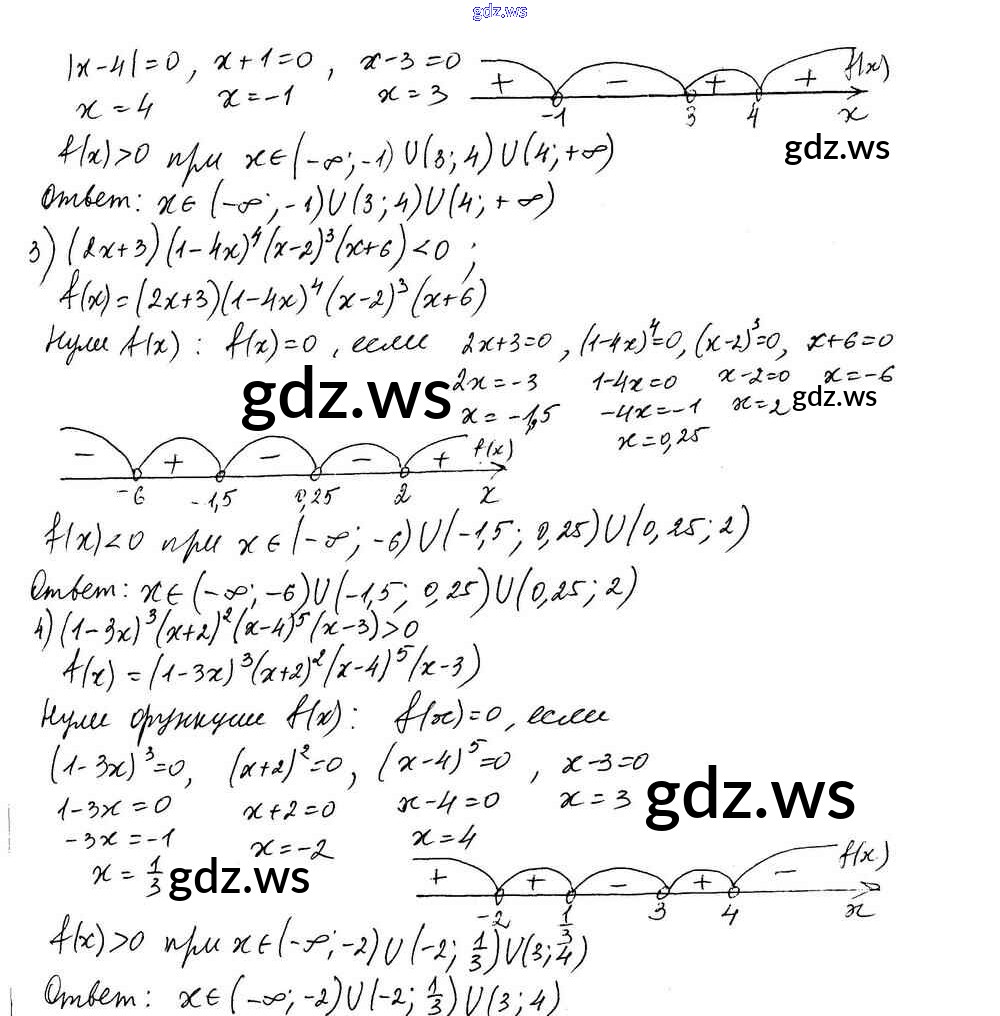 gdz.ws
|x-4|=0, x+1=0, x-3=0
x=4 x=-1 x=3
+ - + + f(x)
-1 3 4 x
f(x)>0 при x∈(-∞;-1)∪(3;4)∪(4;+∞)
gdz.ws
Ответ: x∈(-∞;-1)∪(3;4)∪(4;+∞)
3) (2x+3)(1-4x)⁴(x-2)³(x+6)<0;
f(x)=(2x+3)(1-4x)⁴(x-2)³(x+6)
Нули f(x): f(x)=0, если 2x+3=0, (1-4x)⁴=0, (x-2)³=0, x+6=0
2x=-3 1-4x=0 x-2=0 x=-6
gdz.ws
x=-1,5 -4x=-1 x=2
gdz.ws
x=0,25
- + - - + f(x)
-6 -1,5 0,25 2 x
f(x)<0 при x∈(-∞;-6)∪(-1,5;0,25)∪(0,25;2)
Ответ: x∈(-∞;-6)∪(-1,5;0,25)∪(0,25;2)
4) (1-3x)³(x+2)²(x-4)⁵(x-3)>0
f(x)=(1-3x)³(x+2)²(x-4)⁵(x-3)
Нули функции f(x): f(x)=0, если
(1-3x)³=0, (x+2)²=0, (x-4)⁵=0, x-3=0
1-3x=0 x+2=0 x-4=0 x=3
gdz.ws
-3x=-1 x=-2 x=4
x=1/3
gdz.ws
+ + - + - f(x)
-2 1/3 3 4 x
f(x)>0 при x∈(-∞;-2)∪(-2;1/3)∪(3;4)
Ответ: x∈(-∞;-2)∪(-2;1/3)∪(3;4)